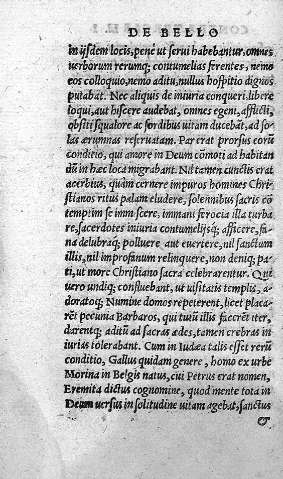 DE BELLO
in ijsdem locis, pene ut serui habebantur, omnes
uerborum rerumq; contumelias ferentes, nemo
eos colloquio, nemo aditu, nullus hospitio dignos
putabat. Nec aliquis de iniuria conqueri, libere
loqui, aut hiscere audebat, omnes egent, afflicti,
obsiti squalore ac sordibus uitam ducebãt, ad so-
las ærumnas reseruatam. Par erat prorsus eorũ
conditio, qui amore in Deum cõmoti ad habitan
dũ in hæc loca migrabant. Nil tamen cunctis erat
acerbius, quàm cernere impuros homines Chri-
stianos ritus palam eludere, solennibus sacris cõ
temptim se immiscere, immani ferocia illa turba
re, sacerdotes iniuria contumelijsq; afficere, fa-
na delubraq; polluere aut euertere, nil sanctum
illis, nil improfanum relinquere, non deniq; pa-
ti, ut more Christiano sacra celebrarentur. Qui
uero undiq; confluebant, ut uisitatis templis, a-
doratoq; Numine domos repeterent, licet placa-
rẽt pecunia Barbaros, qui tutũ illis facerẽt iter,
darentq; aditũ ad sacras ædes, tamen crebras in
iurias tolerabant. Cum in Iudæa talis esset rerũ
conditio, Gallus quidam genere, homo ex urbe
Morina in Belgis natus, cui Petrus erat nomen,
Eremita dictus cognomine, quod mente tota in
Deum uersus in solitudine uitam agebat, sanctus
&